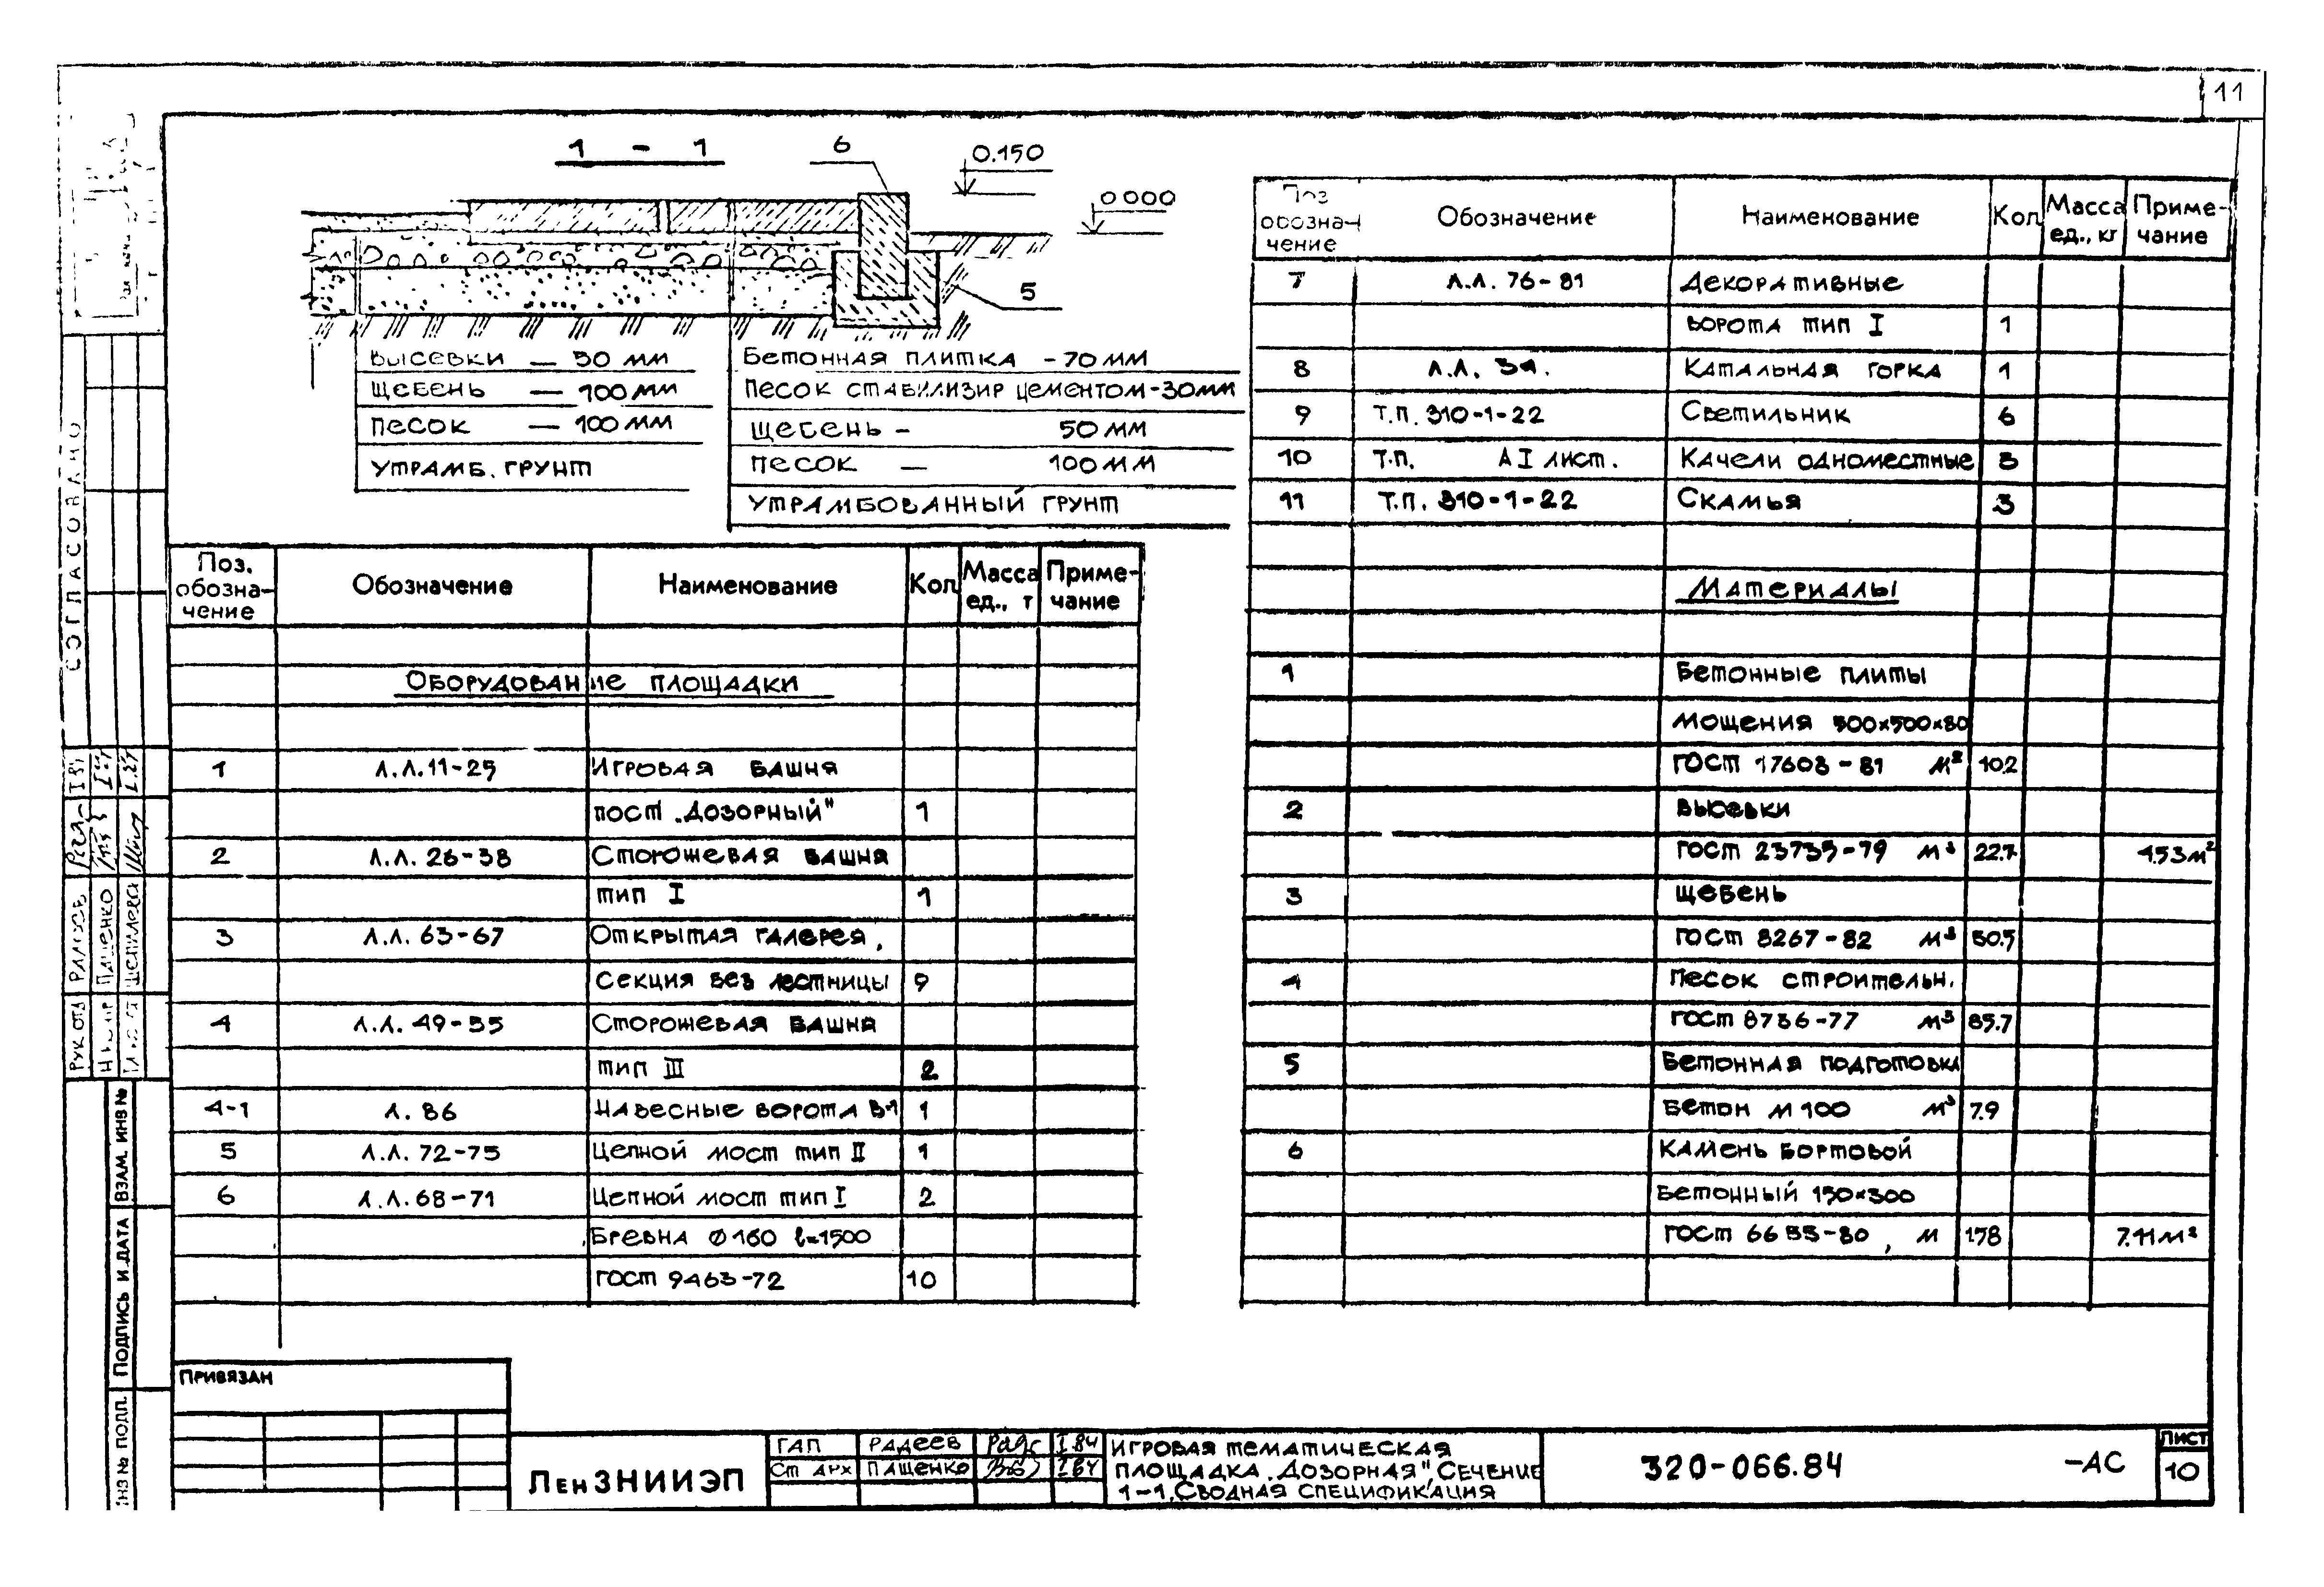 11
1 - 1
6
0.150
0 000
5
Высевки — 50 мм
Щебень — 100 мм
Песок — 100 мм
Утрамб. грунт
Бетонная плитка - 70 мм
Песок стабилизир цементом - 30 мм
Щебень - 50 мм
Песок — 100 мм
Утрамбованный грунт
Поз. обозна-чение Обозначение Наименование Кол Масса ед., т Приме-чание
Оборудование площадки
1 Л.Л. 11-25 Игровая башня
пост „Дозорный" 1
2 Л.Л. 26-38 Сторожевая башня
тип I 1
3 Л.Л. 63-67 Открытая галерея,
секция без лестницы 9
4 Л.Л. 49-55 Сторожевая башня
тип III 2
4-1 Л. 86 Навесные ворота В-1 1
5 Л.Л. 72-75 Цепной мост тип II 1
6 Л.Л. 68-71 Цепной мост тип I 2
Бревна Ø 160 ℓ=1500
ГОСТ 9463-72 10
Поз обозна-чение Обозначение Наименование Кол Масса ед., кг Приме-чание
7 Л.Л. 76-81 Декоративные
ворота тип I 1
8 Л.Л. 34. Катальная горка 1
9 Т.П. 310-1-22 Светильник 6
10 Т.П. А I лист. Качели одноместные 3
11 Т.П. 310-1-22 Скамья 3
Материалы
1 Бетонные плиты
мощения 500×500×80
ГОСТ 17608-81 м² 102
2 Высевки
ГОСТ 23735-79 м³ 22.7 453 м²
3 Щебень
ГОСТ 8267-82 м³ 50.5
4 Песок строительн.
ГОСТ 8736-77 м³ 85.7
5 Бетонная подготовка
Бетон М 100 м³ 7.9
6 Камень бортовой
бетонный 150×300
ГОСТ 6655-80, м 158 7.11 м³
СОГЛАСОВАНО
Рук отд Радеев I 84
Пащенко
Шепилева
Взам. инв №
Подпись и дата
Инв № подл.
Привязан
ЛенЗНИИЭП
ГАП Радеев I.84
Ст арх Пащенко I 84
Игровая тематическая
площадка „Дозорная", Сечение
1-1, Сводная спецификация
320-066.84 -АС
Лист
10